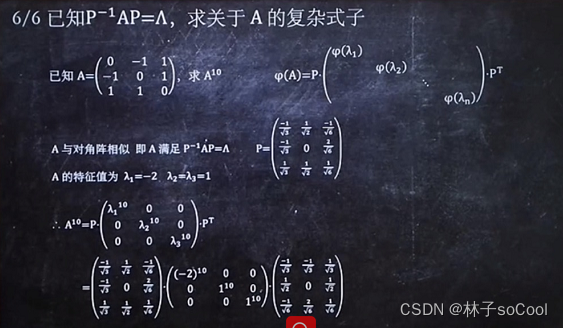 6/6 已知P⁻¹AP=Λ，求关于 A 的复杂式子
已知 A=(0 -1 1; -1 0 1; 1 1 0)，求 A¹⁰
φ(A)=P·(φ(λ₁) φ(λ₂) ⋱ φ(λₙ))·Pᵀ
A 与对角阵相似 即 A 满足 P⁻¹AP=Λ
P=(-1/√3 1/√2 -1/√6; -1/√3 0 2/√6; 1/√3 1/√2 1/√6)
A 的特征值为 λ₁=−2 λ₂=λ₃=1
∴ A¹⁰=P·(λ₁¹⁰ 0 0; 0 λ₂¹⁰ 0; 0 0 λ₃¹⁰)·Pᵀ
=(-1/√3 1/√2 -1/√6; -1/√3 0 2/√6; 1/√3 1/√2 1/√6)·((-2)¹⁰ 0 0; 0 1¹⁰ 0; 0 0 1¹⁰)·(-1/√3 -1/√3 1/√3; 1/√2 0 1/√2; -1/√6 2/√6 1/√6)
CSDN @林子soCool